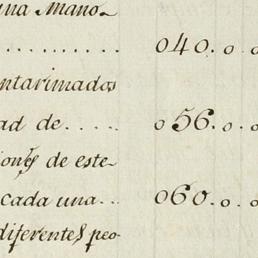 una Mano-
.......... 040. o. o
entarimados
ad de.... o 56. o. o
iones de este-
cada una... 060. o. o
diferentes peo-